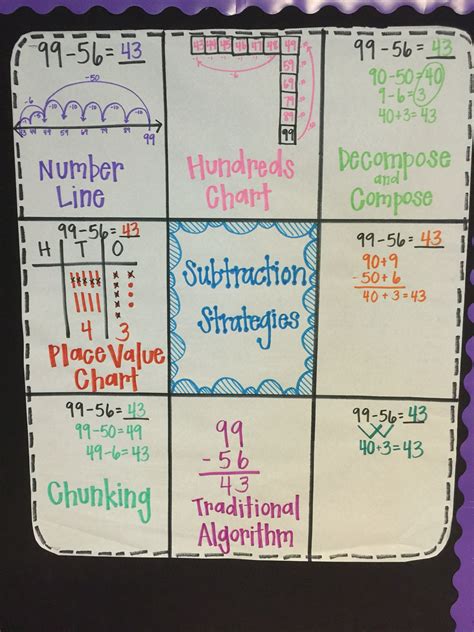 99-56=43
-50
-6 -10 -10 -10 -10 -10
43 49 59 69 79 89 99
Number
Line
43 44 45 46 47 48 49
59
69
79
89
99
Hundreds
Chart
99-56=43
90-50=40
9-6=3
40+3=43
Decompose
and
Compose
99-56=43
H T O
4 3
Place Value
Chart
Subtraction
Strategies
99-56=43
90+9
- 50+6
40+3=43
99-56=43
99-50=49
49-6=43
Chunking
99
-56
43
Traditional
Algorithm
99-56=43
40+3=43